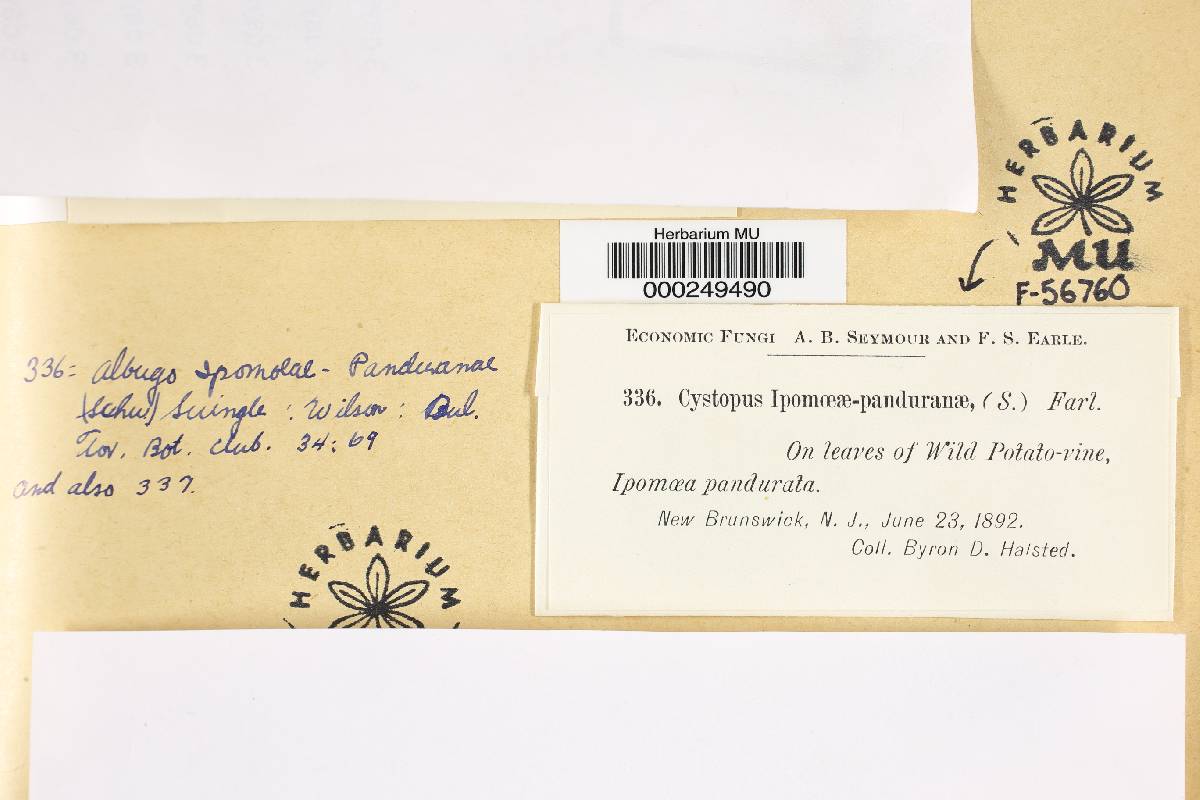 HERBARIUM
MU
F-56760
Herbarium MU
000249490
336= Albugo Ipomoeae - Panduranae
(Schw) Swingle : Wilson : Bul.
Tor. Bot. Club. 34:69
and also 337.
ECONOMIC FUNGI A. B. SEYMOUR AND F. S. EARLE.
336. Cystopus Ipomœæ-panduranæ, (S.) Farl.
On leaves of Wild Potato-vine,
Ipomœa pandurata.
New Brunswick, N. J., June 23, 1892.
Coll. Byron D. Halsted.
HERBARIUM